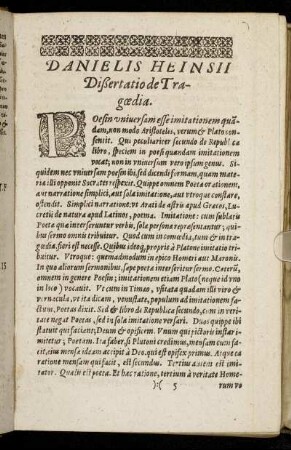 DANIELIS HEINSII
Dißertatio de Tra-
gœdia.
POesin vniuersam esse imitationem quã-
dam, non modo Aristoteles, verum & Plato con-
sensit. Qui peculiariter secundo de Republica
libro, speciem in poesi quandam imitationem
vocat; non in vniuersum vero ipsum genus. Si-
quidem nec vniuersam poesin ibi, sed dicendi formam, quam mate-
ria illi opponit Socrates respexit. Quippe omnem Poeta orationem,
aut narratione simplici, aut sola imitatione, aut vtroque constare,
ostendit. Simplici narratione, vt Arati de astris apud Græcos, Lu-
cretij de natura apud Latinos, poema. Imitatione: cum sublatis
Poeta qua interseruntur verbis, sola persona repræsentantur, qui-
bus sermo omnis tribuitur. Quod cum in comœdia, tum & in tra-
gœdia, fieri est necesse. Quibus ideo, propriè à Platone imitatio tri-
buitur. Vtroque: quemadmodum in epico Homeri aut Maronis.
In quo aliorum sermonibus, sæpe poeta interseritur sermo. Cæterũ,
omnem in genere Poesin, imitationem etiam Plato (neque id vno
in loco) vocauit. Vt cum in Timæo, vsitata quadam illi viro &
vernacula, vt ita dicam, venustate, populum ad imitationem fa-
ctum, Poetas dixit. Sed & libro de Republica secundo, cum in veri-
tate negat Poetas, sed in sola imitatione versari. Duos quippe ibi
statuit qui faciant; Deum & opificem. Vnum qui pictoris instar i-
mitetur; Poetam. Ita faber, si Platoni credimus, mensam cum fa-
cit, eius mensæ ideam accipit à Deo, qui est opifex primus. Atque ea
ratione mensam qui facit, est secundus. Tertius autem est qui imi-
tatur. Qualis est poeta. Et hac ratione, tertium à veritate Home-
):( 5 rum vo